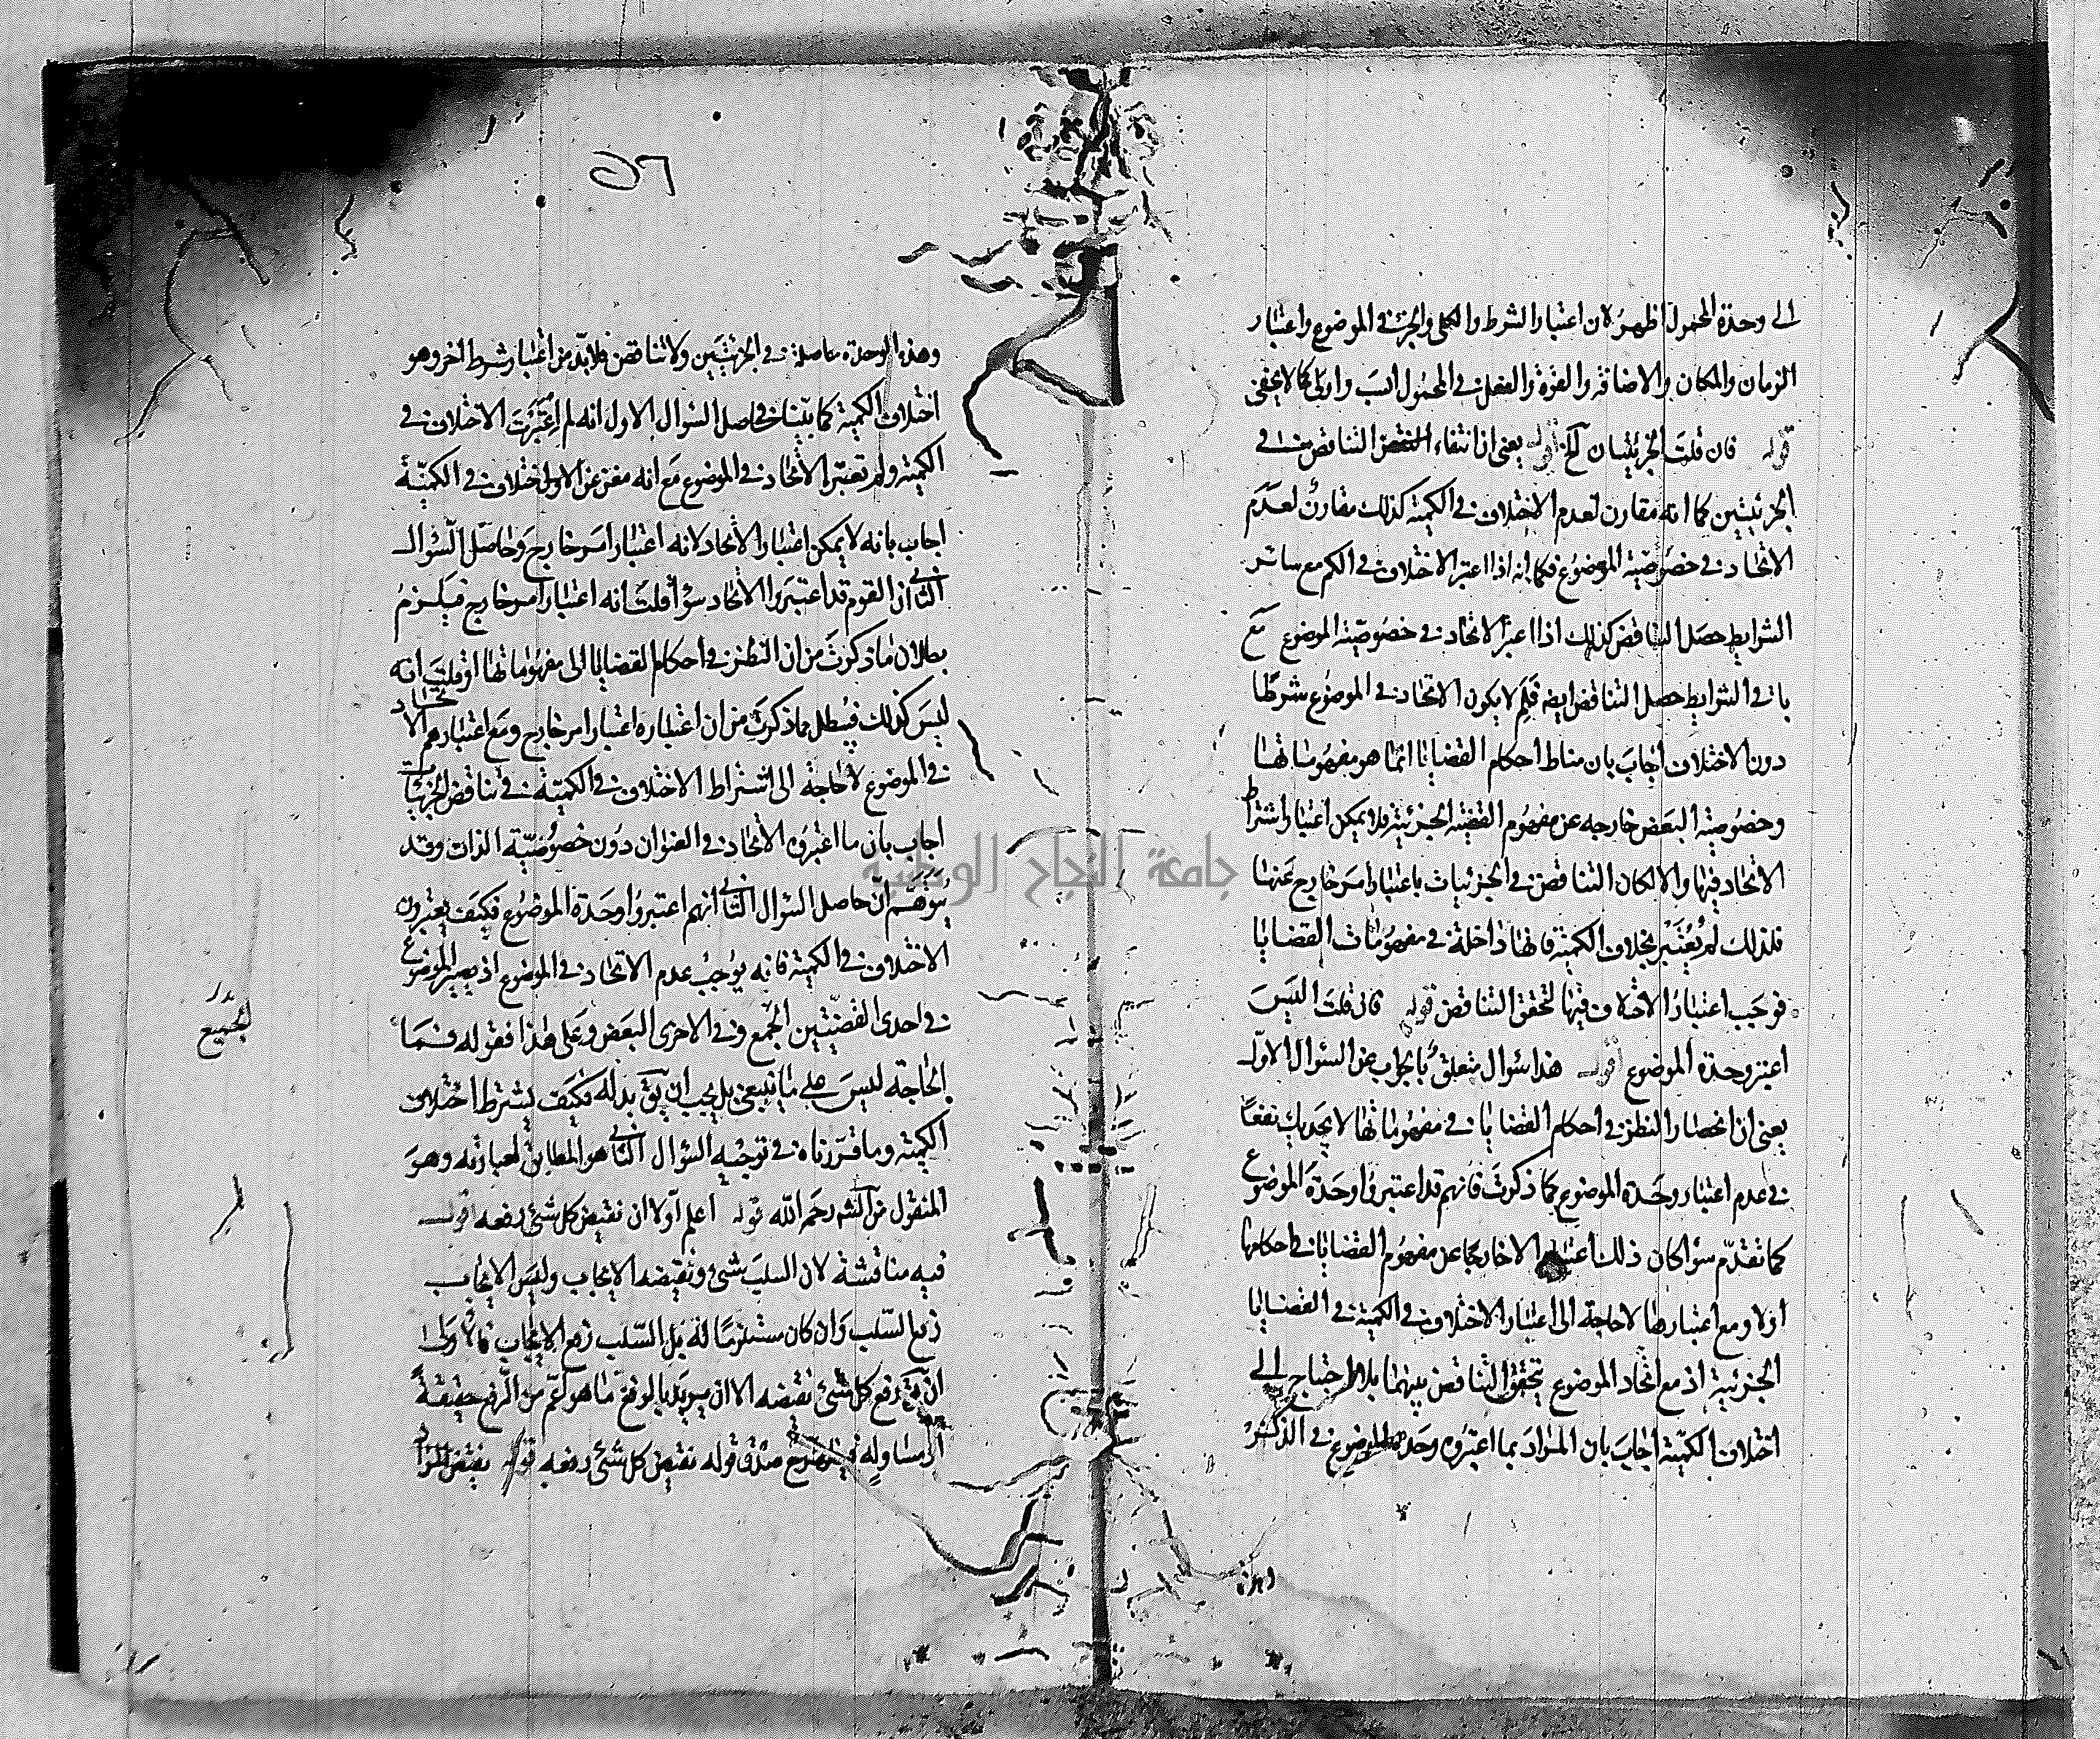 الى وحدة المحمول اظهر لان اعتبار الشرط والكلى والجزء فى الموضوع واعتبار
الزمان والمكان والاضافة والقوة والفعل فى المحمول انسب واولى كما لا يخفى
قوله فان قلت الجزئيتان الخ اقول يعنى ان انتفاء التناقض فى
الجزئيتين كما انه مقارن لعدم الاختلاف فى الكمية كذلك مقارن لعدم
الاتحاد فى خصوصية الموضوع فكما انه اذا اعتبر الاختلاف فى الكم مع سائر
الشرايط حصل التناقض كذلك اذا اعتبر الاتحاد فى خصوصية الموضوع مع
باقى الشرايط حصل التناقض ايضا فلم لا يكون الاتحاد فى الموضوع شرطا
دون الاختلاف اجاب بان مناط احكام القضايا انما هو مفهوماتها
وخصوصية البعض خارجه عن مفهوم القضية الجزئية فلا يمكن اعتبار اشتراط
الاتحاد فيها والا لكان التناقض فى الجزئيات باعتبار امر خارج عنها
فلذلك لم يعتبر بخلاف الكمية فانها داخلة فى مفهومات القضايا
فوجب اعتبار الاختلاف فيها لتحقق التناقض قوله فان قلت اليس
اعتبر وحدة الموضوع اقول هذا سؤال متعلق بالجواب عن السؤال الاول
يعنى ان انحصار النظر فى احكام القضايا فى مفهوماتها لا يجديك نفعا
فى عدم اعتبار وحدة الموضوع بما ذكرت فانهم قد اعتبروا وحدة الموضوع
كما تقدم سؤا كان ذلك اعتبار الا خارجا عن مفهوم القضايا فى احكامها
اولا ومع اعتبارها لا حاجة الى اعتبار الاختلاف فى الكمية فى القضايا
الجزئية اذ مع اتحاد الموضوع يتحقق التناقض بينهما بلا احتياج الى
اختلاف الكمية اجاب بان المراد بما اعتبروه وحدة الموضوع فى الذكر
وهذه
٥٦
وهذه الوحدة حاصلة فى الجزئيتين ولا تناقض فلا بد من اعتبار شرط اخر وهو
اختلاف الكمية كما بينا فحاصل السؤال الاول انه لم اعتبرت الاختلاف فى
الكمية ولم تعتبر الاتحاد فى الموضوع مع انه مغن عن الاختلاف فى الكمية
اجاب بانه لا يمكن اعتبار الاتحاد لانه اعتبار امر خارج وحاصل السؤال
الثانى ان القوم قد اعتبروا الاتحاد سؤا قلت انه اعتبار امر خارج فيلزم
بطلان ما ذكرت من ان النظر فى احكام القضايا الى مفهوماتها او قلت انه
ليس كذلك فيبطل ما ذكرت من ان اعتباره اعتبار امر خارج ومع اعتبارهم الاتحاد
فى الموضوع لا حاجة الى اشتراط الاختلاف فى الكمية فى تناقض الجزئيات
اجاب بان ما اعتبروه الاتحاد فى العنوان دون خصوصية الذات وقد
يتوهم ان حاصل السؤال الثانى انهم اعتبروا وحدة الموضوع فكيف يعتبرون
الاختلاف فى الكمية فانه يوجب عدم الاتحاد فى الموضوع اذ يصير الموضوع
فى احدى القضيتين الجمع وفى الاخرى البعض وعلى هذا فقوله فما
الحاجة ليس على ما ينبغى بل يجب ان يق بدله فكيف يشترط اختلاف
الكمية وما قررناه فى توجيه السؤال الثانى هو المطابق لعبارته وهو
المنقول من الش رحمه الله قوله اعلم اولا ان نقيض كل شئ رفعه اقول
فيه مناقشة لان السلب شئ ونقيضه الايجاب وليس الايجاب
رفع السلب وان كان مستلزما له بل السلب رفع الايجاب فالاولى
ان يق رفع كل شئ نقيضه الا ان يريد بالرفع ما هو اعم من الرفع حقيقة
او مساويه صدق قوله نقيض كل شئ رفعه قوله
الجميع
جامعة النجاح الوطنية